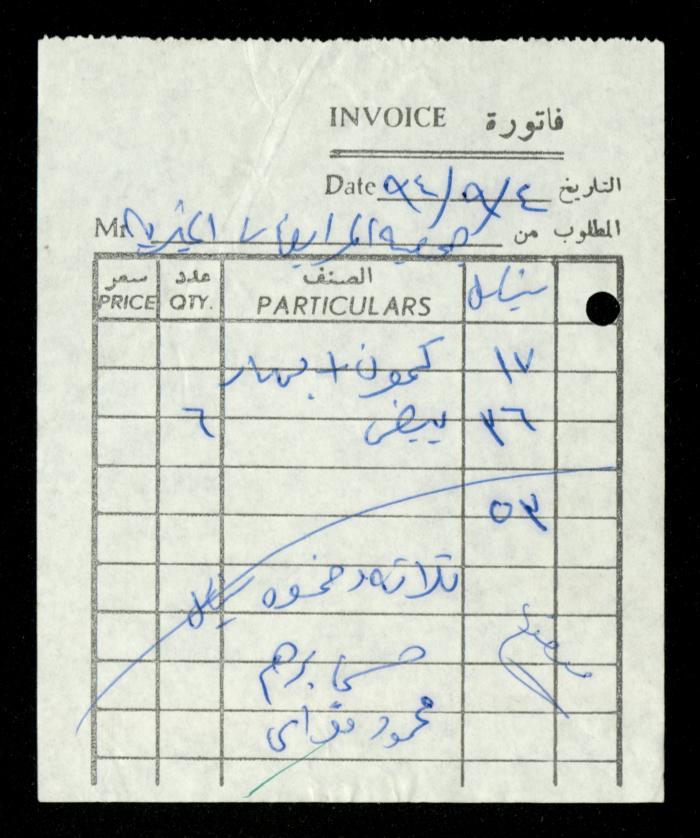 INVOICE فاتورة
Date ٩٤/٩/٤ التاريخ
Mr. جمعية المرابطات الخيرية المطلوب من
سعر عدد الصنف شيكل
PRICE QTY. PARTICULARS
كمون + بهار ١٧
٦ بيض ٣٦
٥٣
ثلاثه وخمسون شيكل
محمود